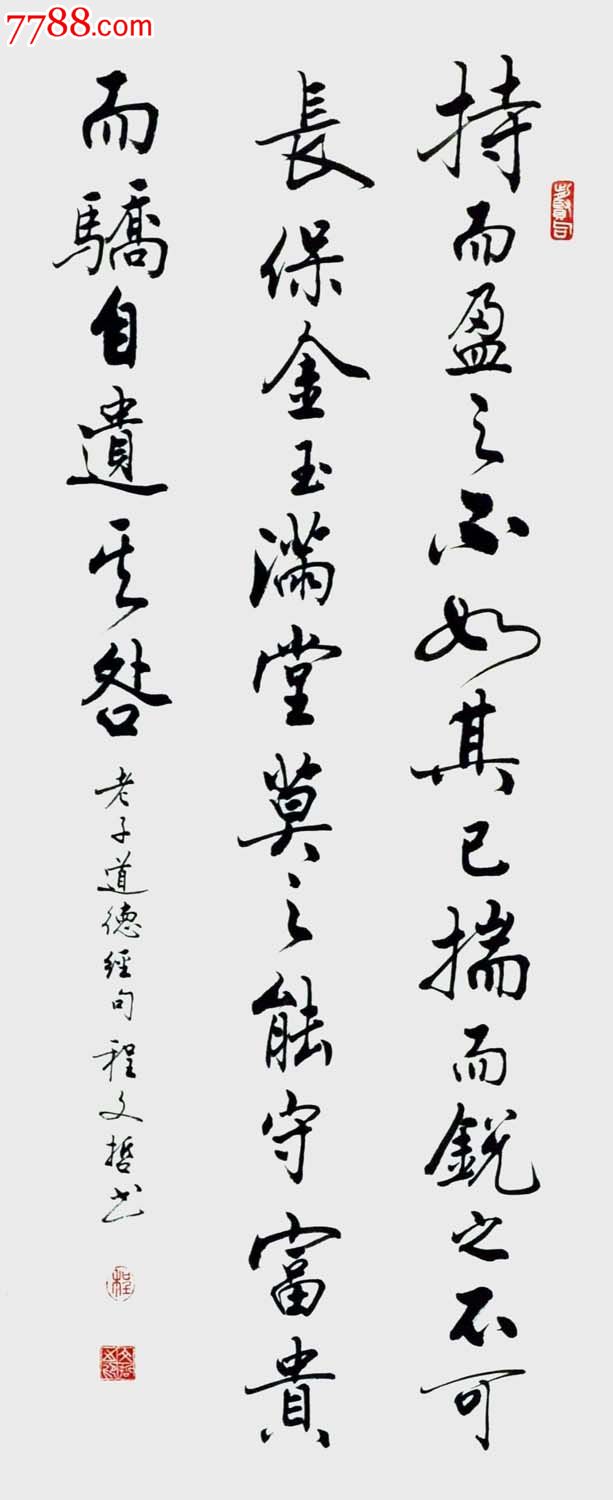 7788.com
持而盈之不如其已揣而鋭之不可
長保金玉滿堂莫之能守富貴
而驕自遺其咎
老子道德經句程文哲书
程